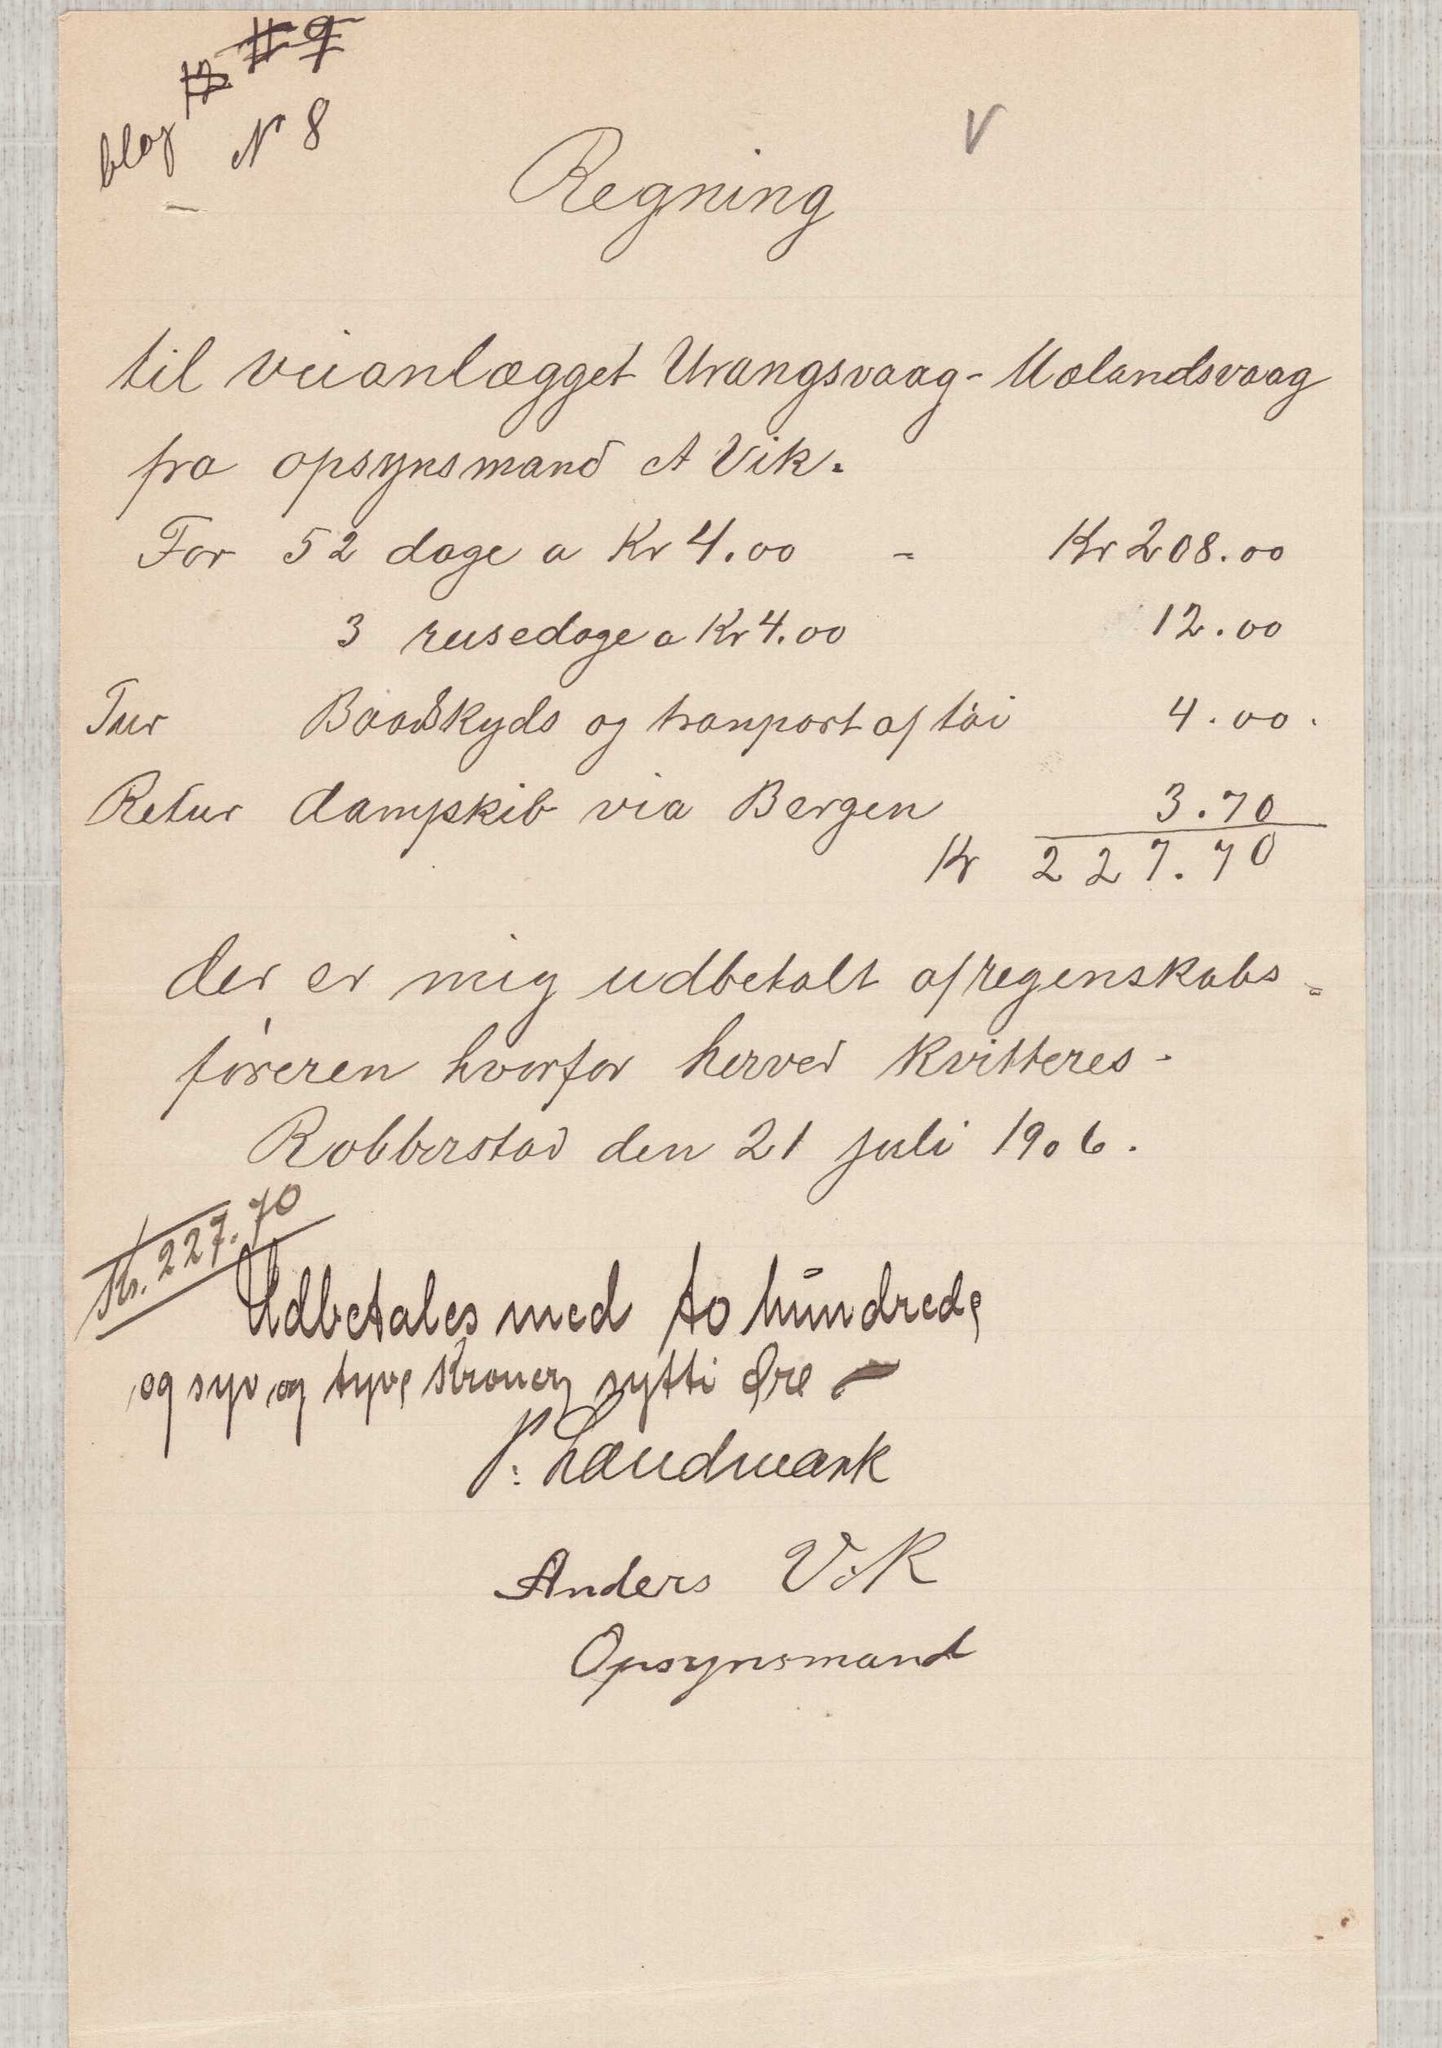 N 8
V
Regning
til veianlægget Urangsvaag - Mælandsvaag
fra opsynsmand A Vik.
For 52 dage a Kr 4.00 - Kr 208.00
3 reisedage a Kr 4.00 12.00
Tur Baadskyds og tranport af tøi 4.00.
Retur dampskib via Bergen 3.70
Kr 227.70
der er mig udbetalt af regenskabs=
føreren hvorfor herved kvitteres.
Robberstad den 21 juli 1906.
Kr. 227.70
Udbetales med to hundrede
og syv og tyve Kroner sytti Øre -
Landmark
Anders Vik
Opsynsmand